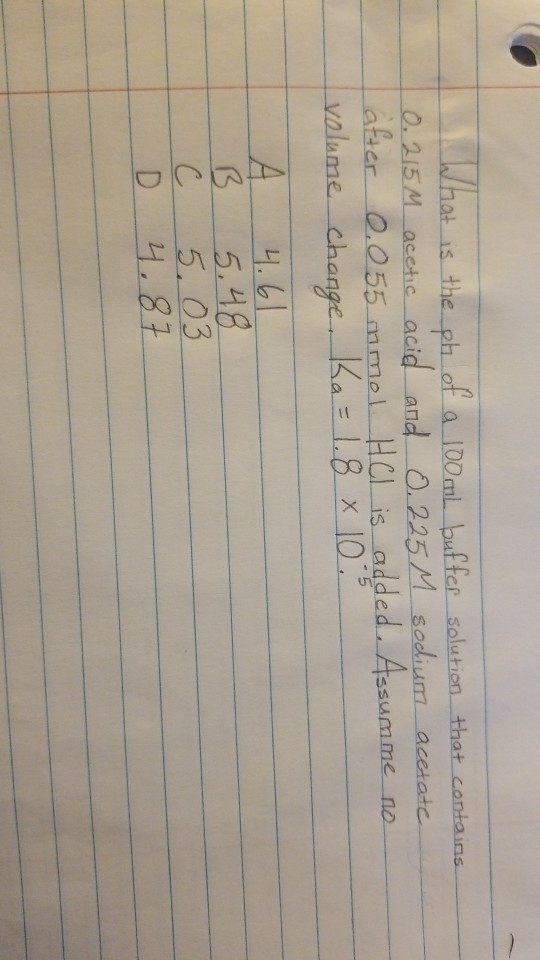 What is the ph of a 100mL buffer solution that contains
0.215M acetic acid and 0.225M sodium acetate
after 0.055 mmol HCl is added. Assumme no
volume change. Ka = 1.8 x 10⁻⁵.
A 4.61
B 5.48
C 5.03
D 4.87